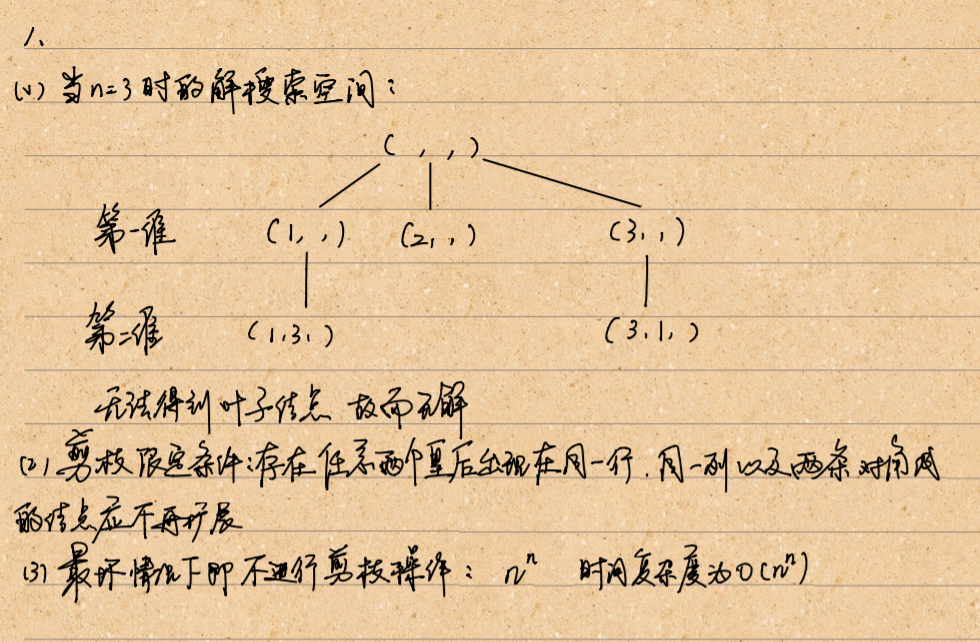 1、
(1) 当n=3时的解搜索空间：
( , , )
第一维 (1, , ) (2, , ) (3, , )
第二维 (1,3, ) (3,1, )
无法得到叶子结点 故而无解
(2) 剪枝限定条件：存在任意两个皇后出现在同一行，同一列以及两条对角线
的结点应不再扩展
(3) 最坏情况下即不进行剪枝操作： nⁿ 时间复杂度为O(nⁿ)